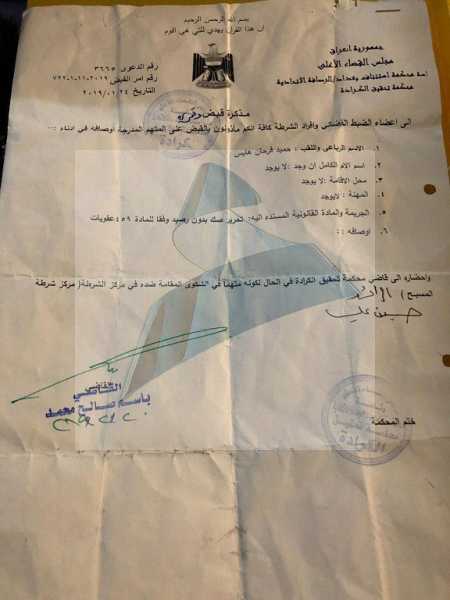 بسم الله الرحمن الرحيم
ان هذا القرآن يهدي للتي هي اقوم
جمهورية العراق
مجلس القضاء الأعلى
محكمة استئناف بغداد/الرصافة الاتحادية
محكمة تحقيق الكرادة
رقم الدعوى ٣٦٦٥
رقم امر القبض ٢٠١٩-١١-١-٧٢٢
التاريخ ٢٠١٩/٠١/٢٤
مذكرة قبض وتحري
الى اعضاء الضبط القضائي وافراد الشرطة كافة انكم مأذونون بالقبض على المتهم المدرجة اوصافه في ادناه :
١. الاسم الرباعي واللقب : حميد فرحان هايس
٢. اسم الام الكامل ان وجد :لا يوجد
٣. محل الاقامة :لا يوجد
٤. المهنة :لايوجد
٥. الجريمة والمادة القانونية المسنده اليه: تحرير صك بدون رصيد وفقا للمادة ٤٥٩عقوبات
٦. اوصافه : :
واحضاره الى قاضي محكمة تحقيق الكرادة في الحال لكونه متهماً في الشكوى المقامة ضده في مركز الشرطة( مركز شرطة
المسبح ) الرائد
حسين علي
القاضي
باسم صالح محمد
ختم المحكمة
الكرادة